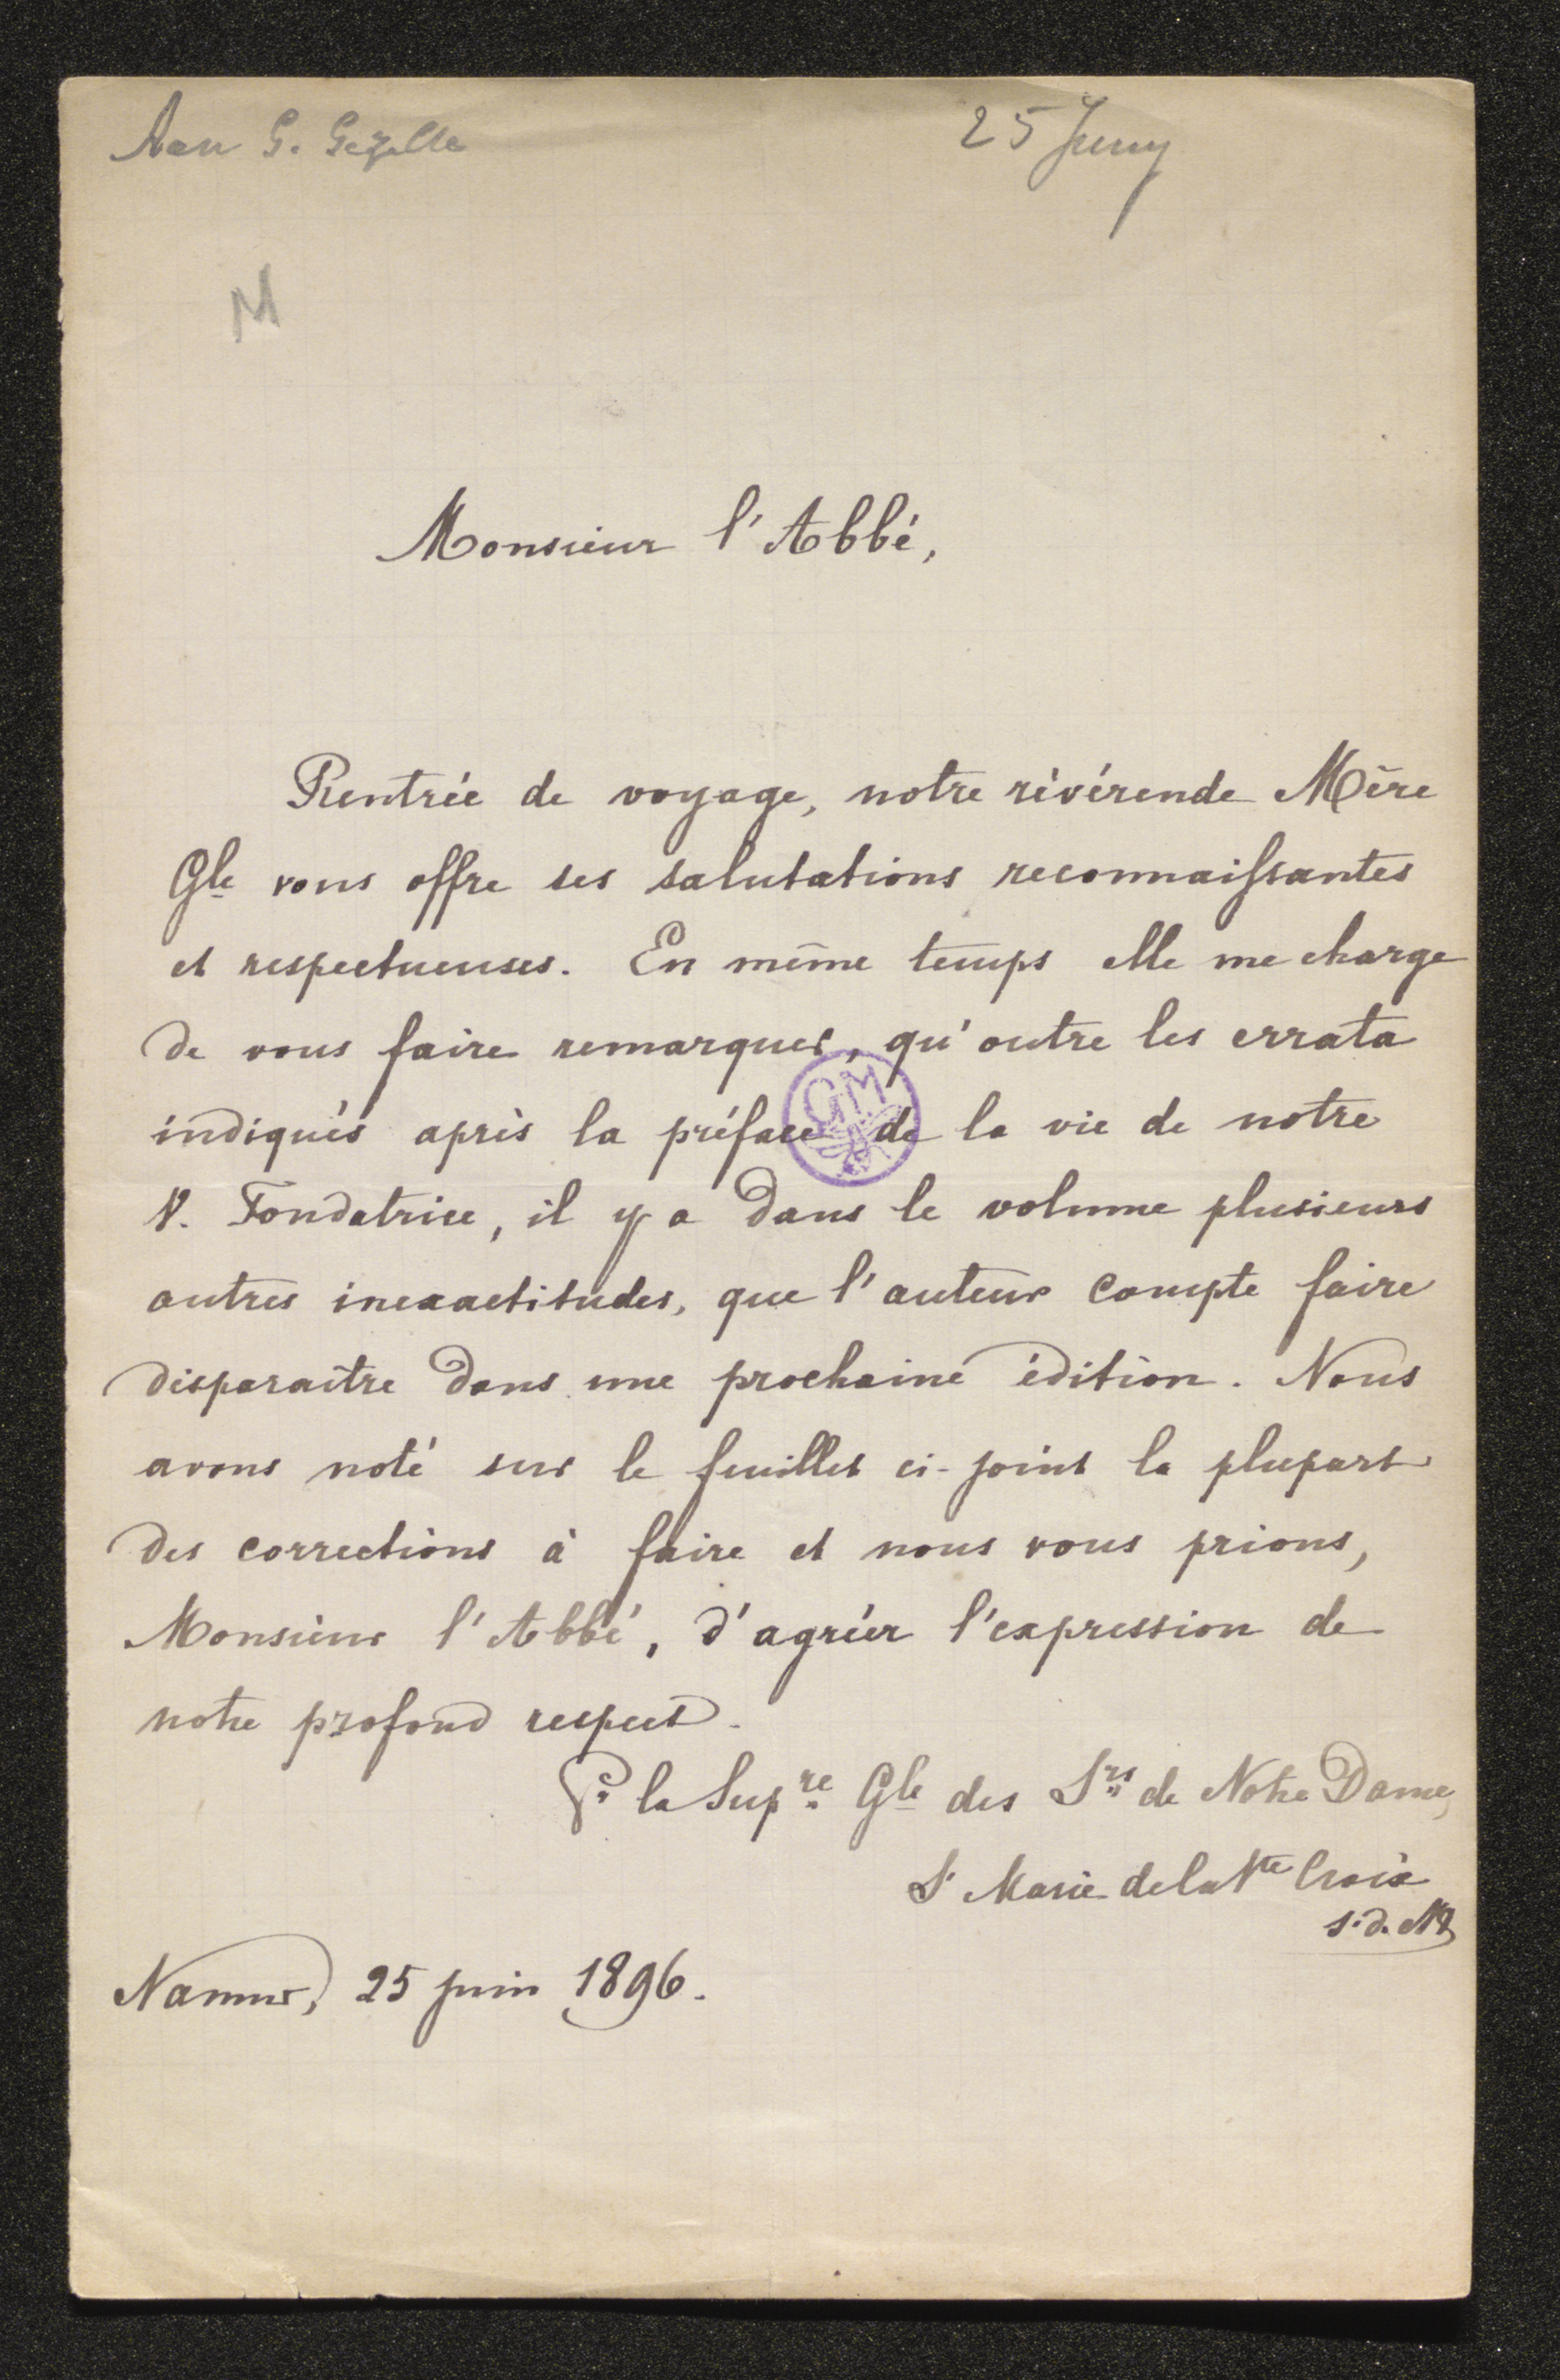 Aan G. Gezelle
25 Juny
M
Monsieur l'Abbé,
Rentrée de voyage, notre révérende Mère
Gle vous offre ses salutations reconnaissantes
et respectueuses. En même temps elle me charge
de vous faire remarquer, qu'outre les errata
indiqués après la préface de la vie de notre
V. Fondatrice, il y a dans le volume plusieurs
autres inexactitudes, que l'auteur compte faire
disparaître dans une prochaine édition. Nous
avons noté sur le feuillet ci-joint la plupart
des corrections à faire et nous vous prions,
Monsieur l'Abbé, d'agréer l'expression de
notre profond respect.
Pr la Supre Gle des Srs de Notre Dame,
Sr Marie de la Ste Croix
s.d. ND
Namur, 25 juin 1896.
GM